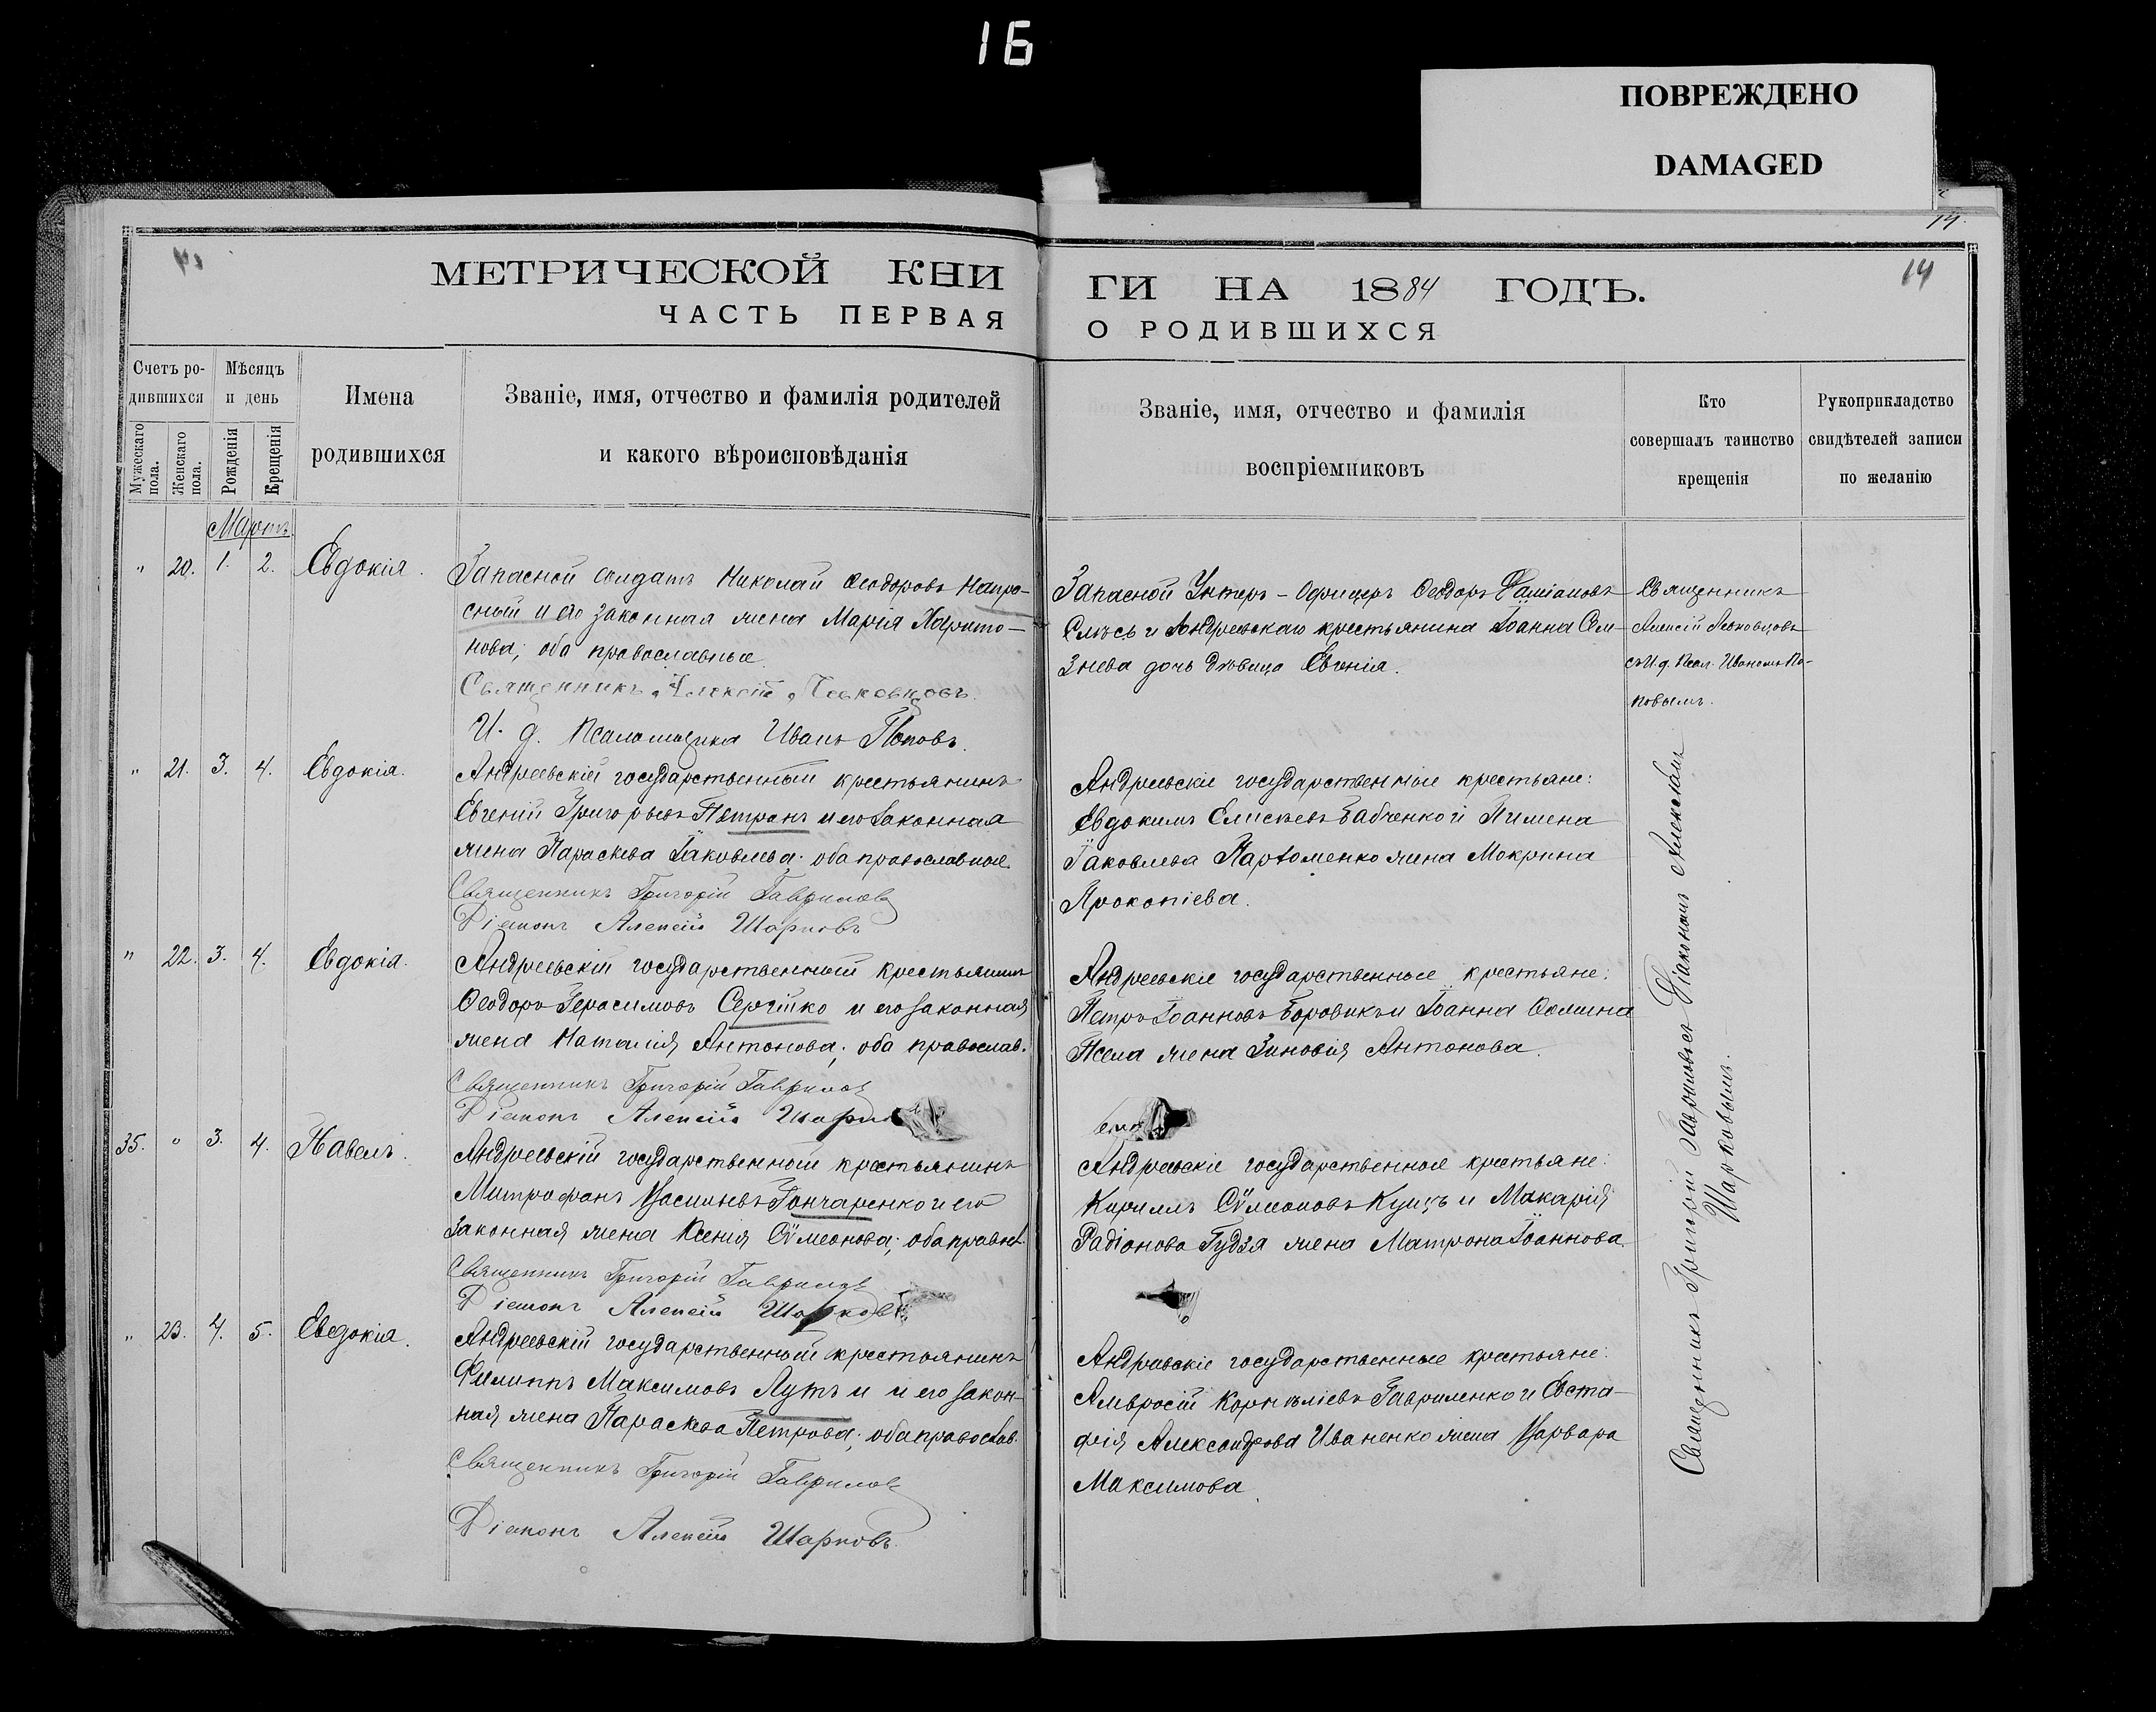 16
ПОВРЕЖДЕНО
DAMAGED
14.
14
МЕТРИЧЕСКОЙ КНИ
ЧАСТЬ ПЕРВАЯ
ГИ НА 1884 ГОДЪ.
О РОДИВШИХСЯ
Счетъ ро-
дившихся
Мужескаго
пола.
Женскаго
пола.
Мѣсяцъ
и день
Рожденія
Крещенія
Имена
родившихся
Званіе, имя, отчество и фамилія родителей
и какого вѣроисповѣданія
Званіе, имя, отчество и фамилія
воспріемниковъ
Кто
совершалъ таинство
крещенія
Рукоприкладство
свидѣтелей записи
по желанію
Мартъ.
" 20. 1. 2. Евдокія.
Запасной солдатъ Николай Ѳеодоровъ Непро-
сный и его законная жена Марія Харито-
нова; оба православные.
Священникъ Алексій
И. д. Псаломщика Иванъ Поповъ.
Запасной Унтеръ-Офицеръ Ѳеодоръ Даміановъ
и Андреевскаго крестьянина Іоанна Сем-
знева дочь дѣвица Евгенія.
Священникъ
Алексій
съ И. д. Псал. Иваномъ По-
повымъ.
" 21. 3. 4. Евдокія.
Андреевскій государственный крестьянинъ
Евгеній Григорьевъ Петранъ и его законная
жена Параскева Іаковлева; оба православные.
Священникъ Григорій Гавриловъ
Діаконъ Алексій Шарковъ
Андреевскіе государственные крестьяне:
Евдокимъ Елисѣевъ Бабченко и Пимена
Іаковлева Парѳоменко жена Мокрина
Прокопіева.
" 22. 3. 4. Евдокія.
Андреевскій государственный крестьянинъ
Ѳеодоръ Герасимовъ Сергійко и его законная
жена Наталія Антонова; оба православ.
Священникъ Григорій Гавриловъ
Діаконъ Алексій Шарк
Андреевскіе государственные крестьяне:
Петръ Іоанновъ Боровикъ и Іоанна Ѳомина
Псела жена Зиновія Антонова.
35. " 3. 4. Павелъ.
Андреевскій государственный крестьянинъ
Митрофанъ Васильевъ Гончаренко и его
законная жена Ксенія Сѵмеонова; оба правосл.
Священникъ Григорій Гавриловъ
Діаконъ Алексій Шарковъ
Андреевскіе государственные крестьяне:
Кириллъ Сѵмеоновъ Куцъ и Макарія
Радіонова Гудзя жена Матрона Іоаннова.
" 23. 4. 5. Евдокія.
Андреевскій государственный крестьянинъ
Филиппъ Максимовъ Лутъ и и его закон-
ная жена Параскева Петрова; оба православ.
Священникъ Григорій Гавриловъ
Діаконъ Алексій Шарковъ.
Андреевскіе государственные крестьяне:
Амвросій Корниліевъ Гавриленко и Евста-
фія Александрова Иваненко жена Варвара
Максимова.
Священникъ Григорій Гавриловъ съ Діакономъ Алексѣемъ
Шарковымъ.